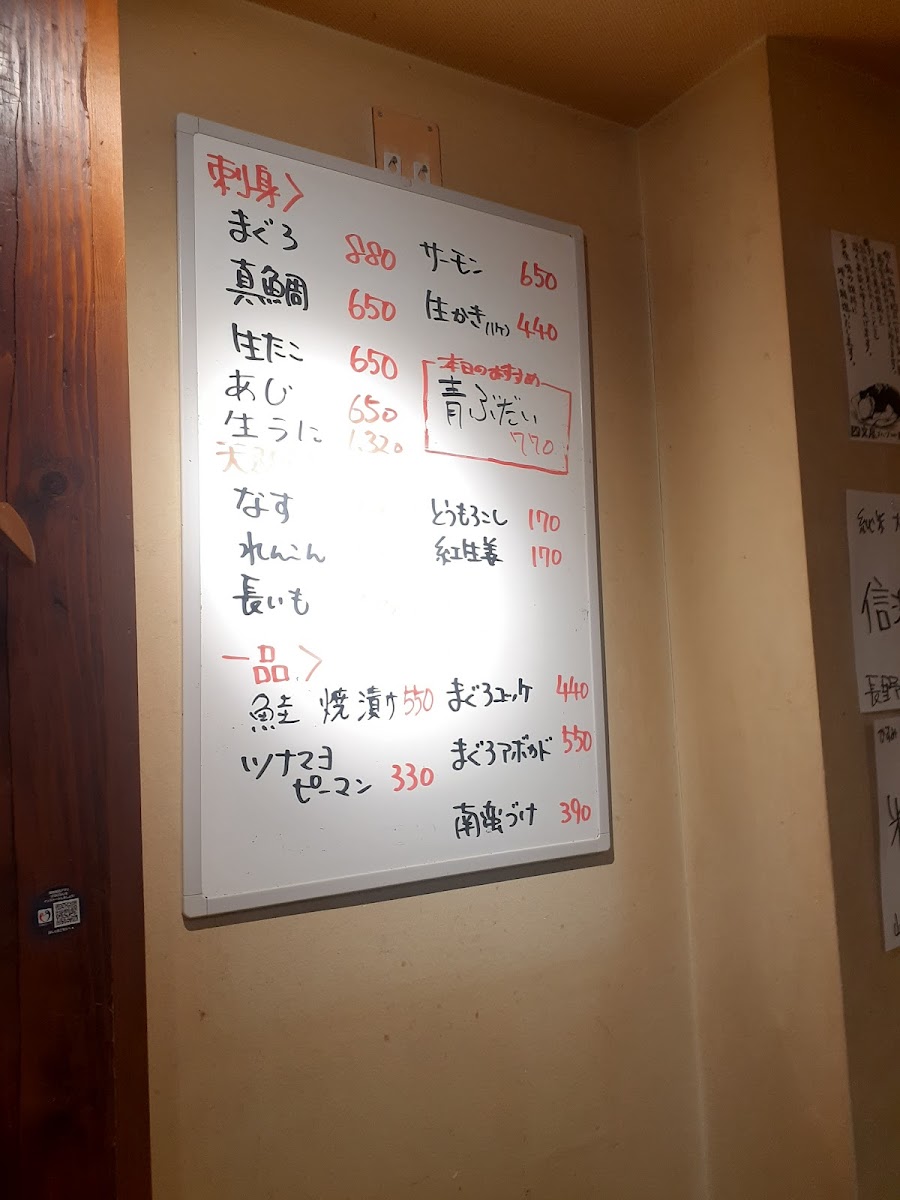 刺身>
まぐろ 880
真鯛 650
生たこ 650
あじ 650
生うに 1,320
サーモン 650
生かき(1ケ) 440
本日のおすすめ
青ぶだい
770
天ぷら
なす
れんこん
長いも
とうもろこし 170
紅生姜 170
一品>
鮭 焼漬け 550
ツナマヨ
ピーマン 330
まぐろユッケ 440
まぐろアボカド 550
南蛮づけ 390
長野